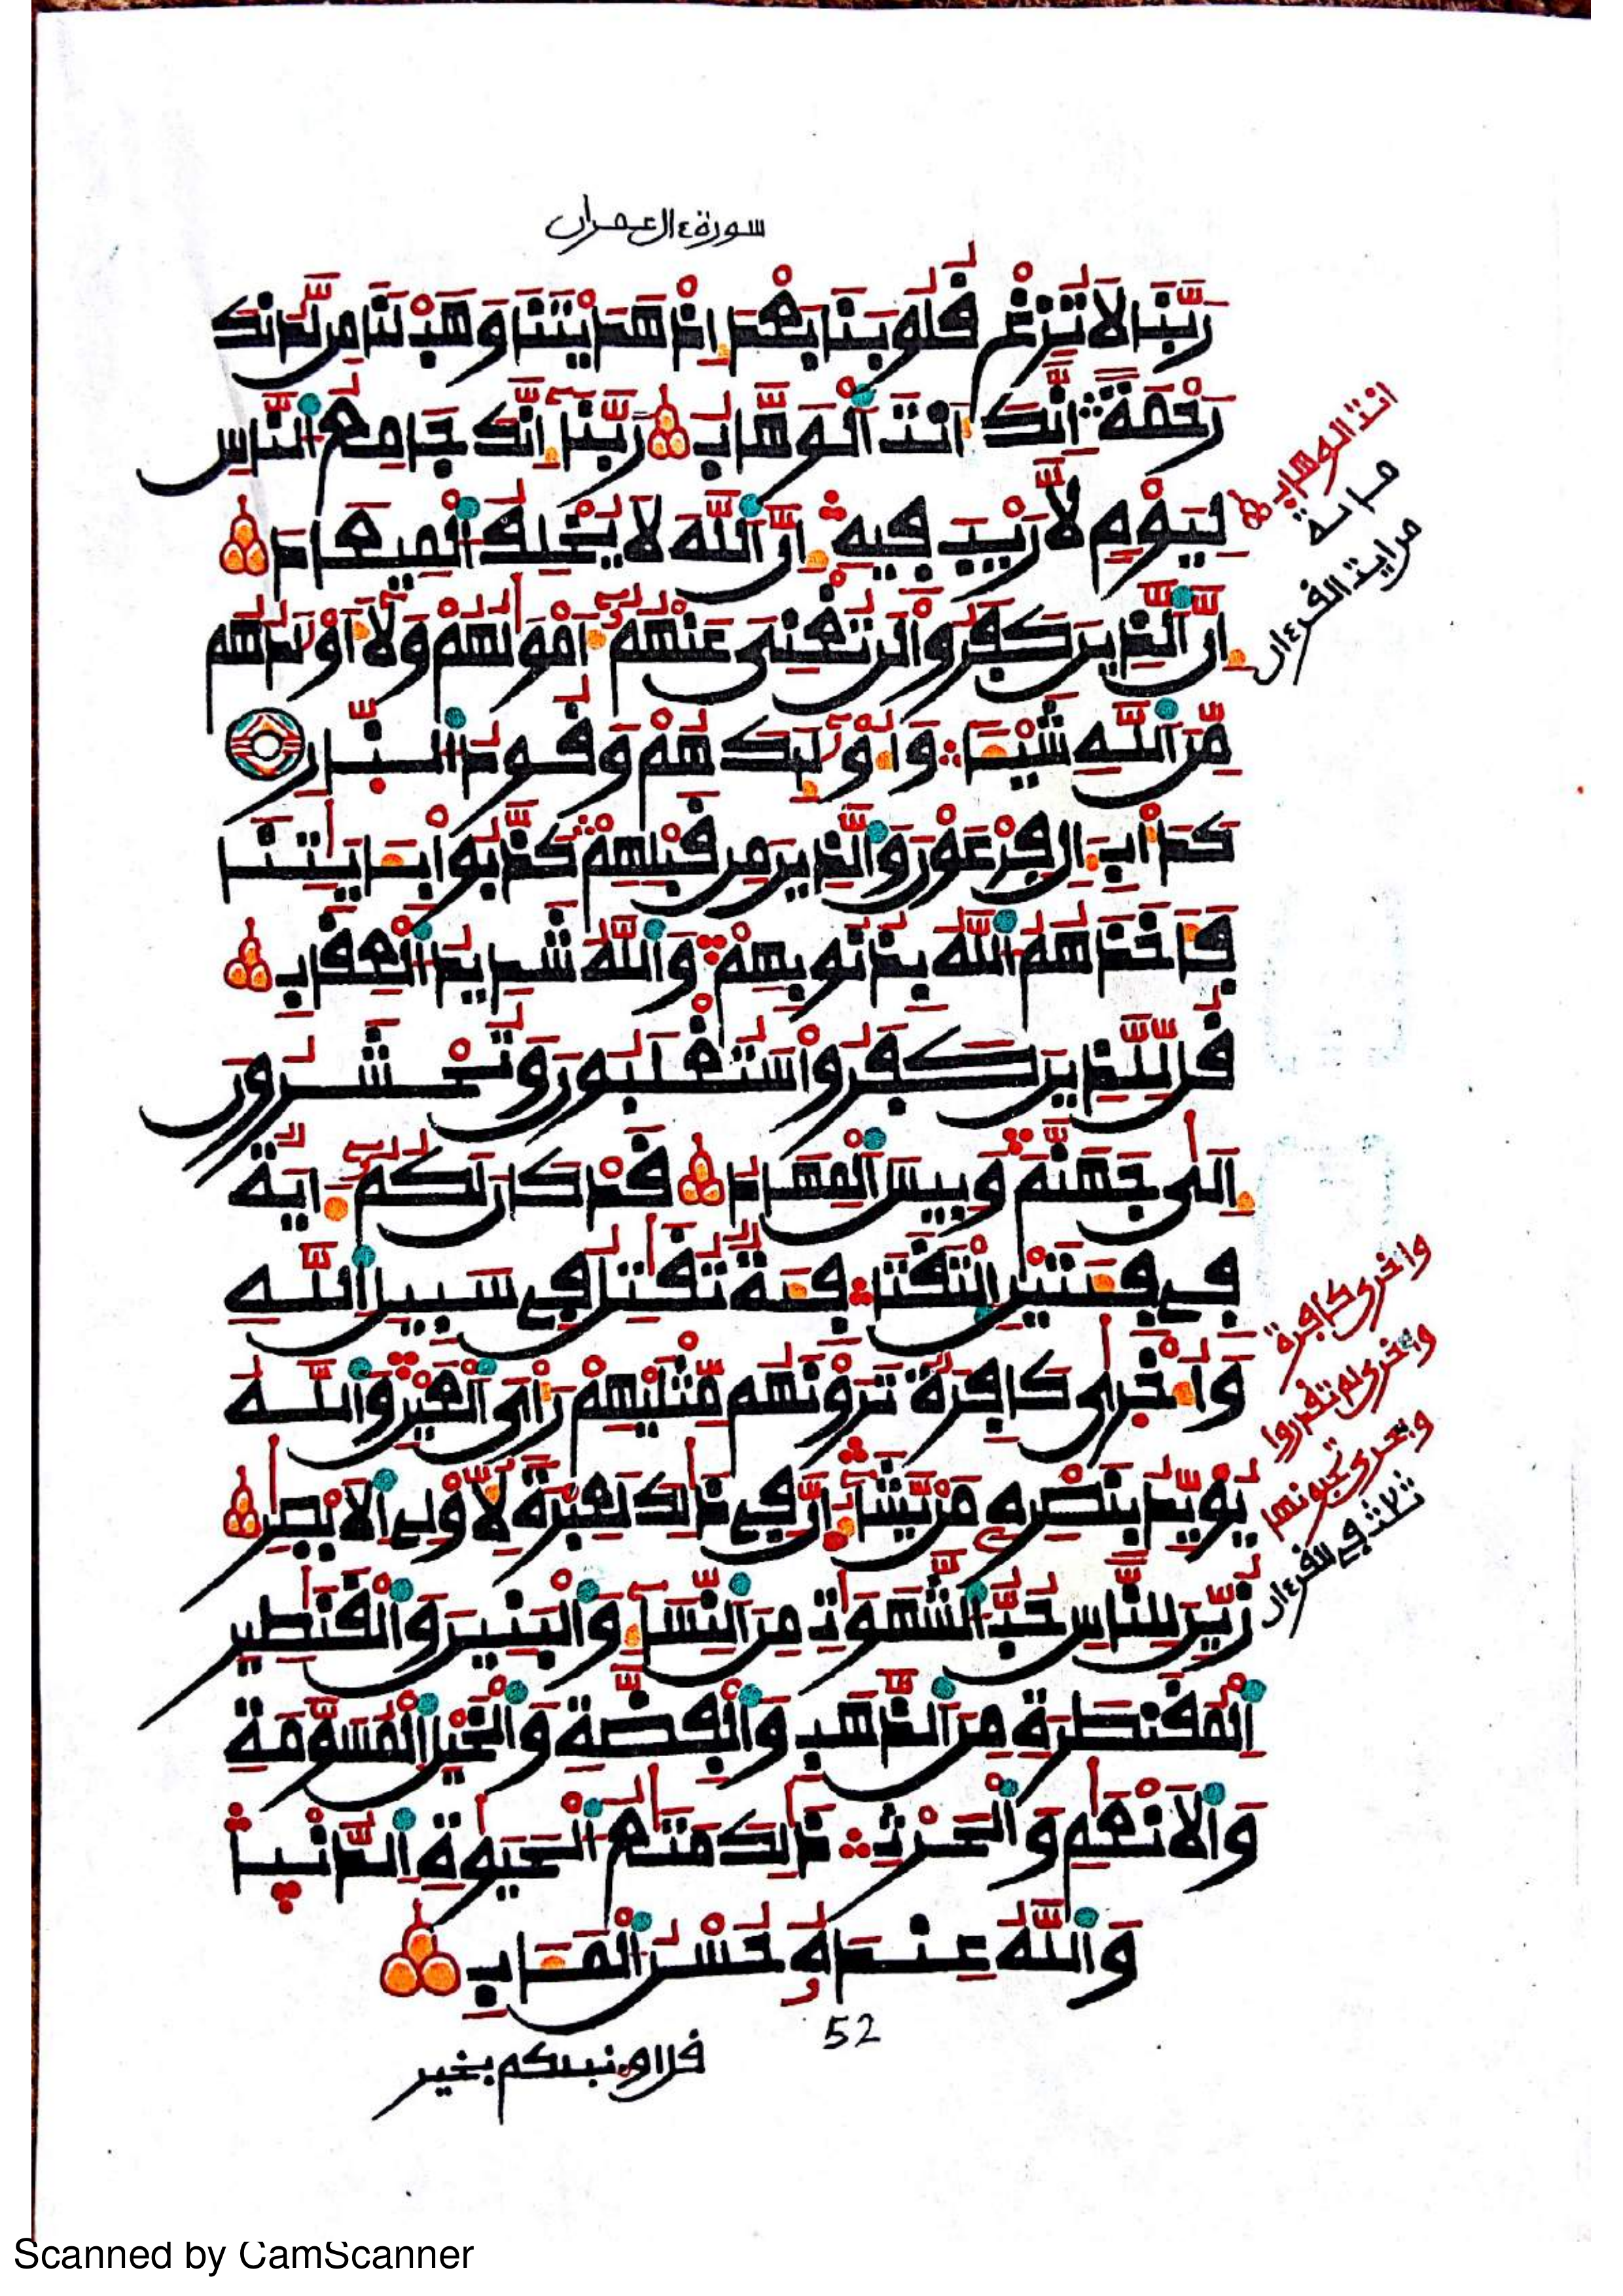 سورة ءال عمران
رَبَّنَا لَا تُزِغْ قُلُوبَنَا بَعْدَ إِذْ هَدَيْتَنَا وَهَبْ لَنَا مِن لَّدُنكَ
رَحْمَةً إِنَّكَ أَنتَ اَلْوَهَّابُ رَبَّنَا إِنَّكَ جَامِعُ اُلنَّاسِ
لِيَوْمٍ لَّا رَيْبَ فِيهِ إِنَّ اَللَّهَ لَا يُخْلِفُ اُلْمِيعَادَ
إِنَّ اَلذِينَ كَفَرُوا لَن تُغْنِيَ عَنْهُمُ أَمْوَٰلُهُمْ وَلَا أَوْلَٰدُهُم
مِّنَ اَللَّهِ شَيْـًٔا وَأُوْلَٰئِكَ هُمْ وَقُودُ اُلنَّارِ
كَدَأْبِ ءَالِ فِرْعَوْنَ وَالذِينَ مِن قَبْلِهِمْ كَذَّبُوا بِـَٔايَٰتِنَا
فَأَخَذَهُمُ اُللَّهُ بِذُنُوبِهِمْ وَاللَّهُ شَدِيدُ اُلْعِقَابِ
قُل لِّلذِينَ كَفَرُوا سَتُغْلَبُونَ وَتُحْشَرُونَ
إِلَىٰ جَهَنَّمَ وَبِيسَ اَلْمِهَادُ قَدْ كَانَ لَكُمُ ءَايَةٌ
فِي فِئَتَيْنِ اِلْتَقَتَا فِئَةٌ تُقَٰتِلُ فِي سَبِيلِ اِللَّهِ
وَأُخْرَىٰ كَافِرَةٌ تَرَوْنَهُم مِّثْلَيْهِمْ رَأْيَ اَلْعَيْنِ وَاللَّهُ
يُؤَيِّدُ بِنَصْرِهِ مَن يَّشَاءُ إِنَّ فِي ذَٰلِكَ لَعِبْرَةً لِّأُوْلِي اِلَابْصَٰرِ
زُيِّنَ لِلنَّاسِ حُبُّ اُلشَّهَوَٰتِ مِنَ اَلنِّسَاءِ وَالْبَنِينَ وَالْقَنَٰطِيرِ
اِلْمُقَنطَرَةِ مِنَ اَلذَّهَبِ وَالْفِضَّةِ وَالْخَيْلِ اِلْمُسَوَّمَةِ
وَالَانْعَٰمِ وَالْحَرْثِ ذَٰلِكَ مَتَٰعُ اُلْحَيَوٰةِ اِلدُّنْيَا
وَاللَّهُ عِندَهُ حُسْنُ اُلْمَـَٔابِ
52
قل اونبئكم بخير
انت الوهاب
مائة
من اية القرءان
واخرى كافرة
واخرى لم تقدروا
واخرى تحبونها
ثلث في القرءان
Scanned by CamScanner